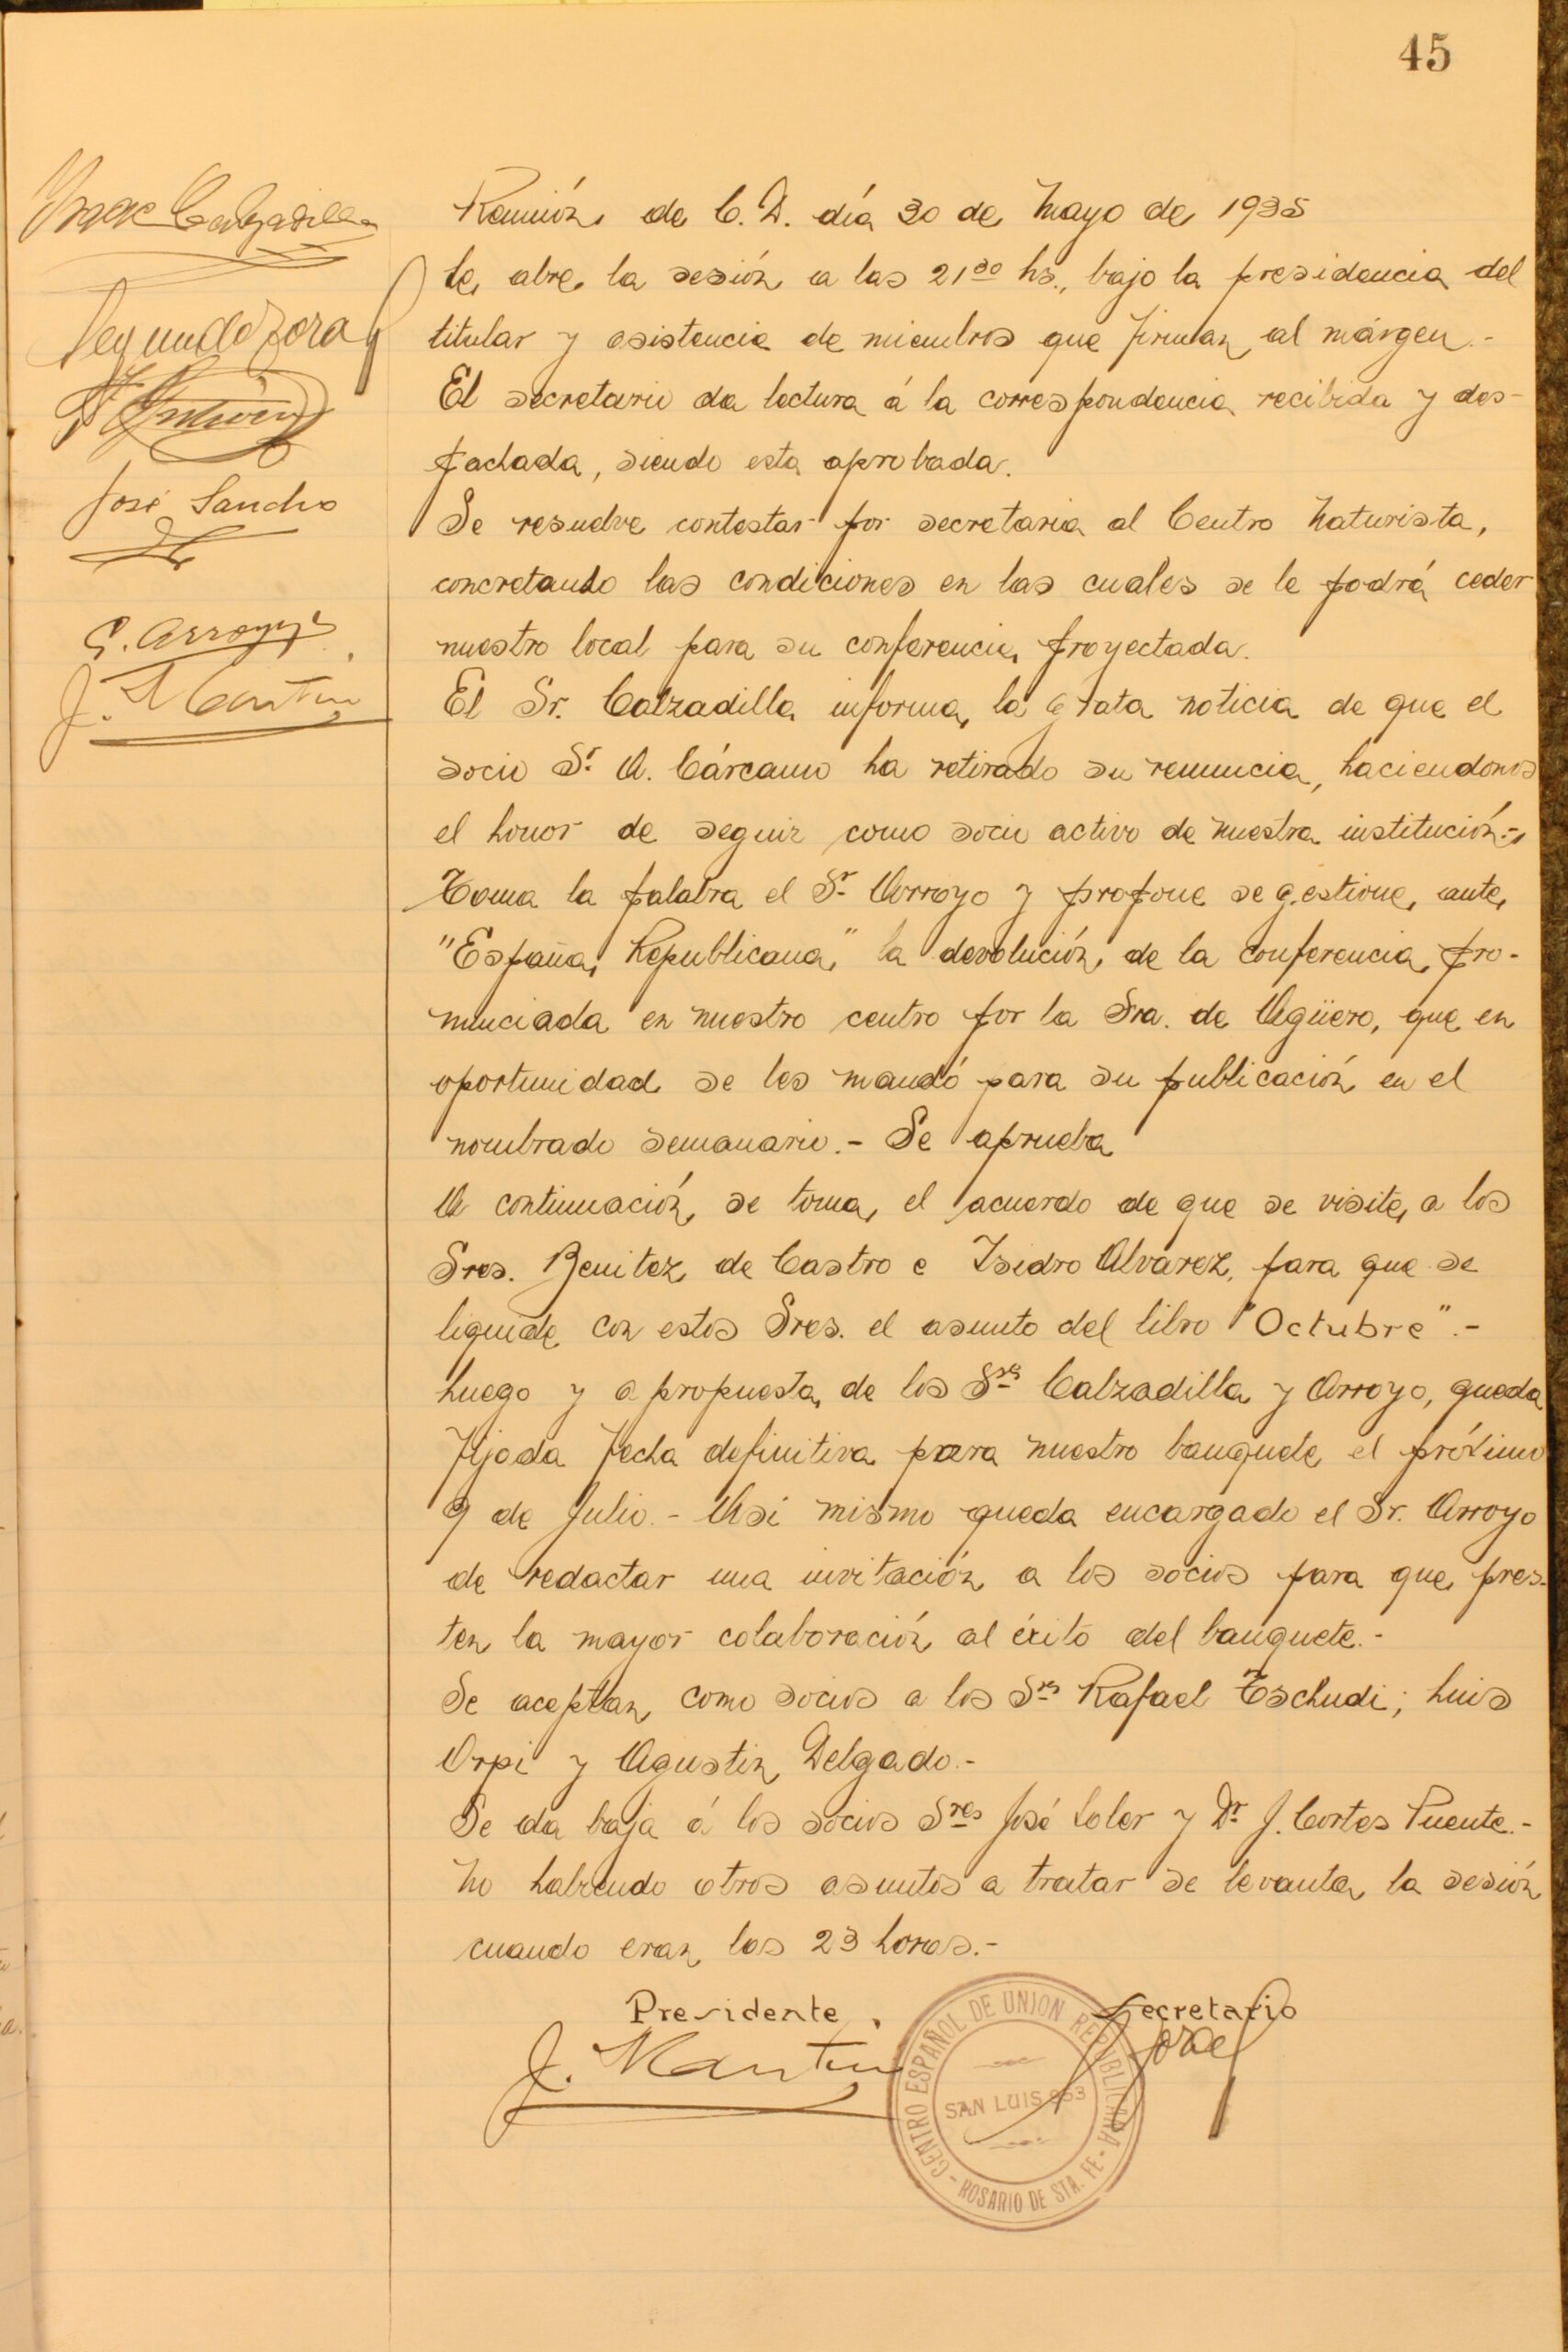 45
Reunión de C. D. día 30 de Mayo de 1935
Se abre la sesión a las 21³⁰ hs., bajo la presidencia del
titular y asistencia de miembros que firman al márgen.-
El secretario da lectura á la correspondencia recibida y des-
pachada, siendo esta aprobada.
Se resuelve contestar por secretaria al Centro Naturista,
concretando las condiciones en las cuales se le podrá ceder
nuestro local para su conferencia proyectada.
El Sr. Calzadilla informa la grata noticia de que el
socio Sr. A. Cárcamo ha retirado su renuncia, haciendonos
el honor de seguir como socio activo de nuestra institución.-
Toma la palabra el Sr. Arroyo y propone se gestione ante
"España Republicana" la devolución de la conferencia pro-
nunciada en nuestro centro por la Sra. de Agüero, que en
oportunidad se les mandó para su publicación en el
nombrado semanario.- Se aprueba
A continuación se toma el acuerdo de que se visite a los
Sres. Benitez de Castro e Isidro Alvarez, para que se
liquide con estos Sres. el asunto del libro "Octubre".-
Luego y a propuesta de los Sres Calzadilla y Arroyo, queda
fijada fecha definitiva para nuestro banquete el próximo
9 de Julio.- Asi mismo queda encargado el Sr. Arroyo
de redactar una invitación a los socios para que pres-
ten la mayor colaboración al éxito del banquete.-
Se aceptan como socios a los Sres Rafael Tschudi; Luis
Orpi y Agustin Delgado.-
Se da baja á los socios Sres José Soler y Dr. J. Cortes Puente.-
No habiendo otros asuntos a tratar se levanta la sesión
cuando eran las 23 horas.-
Presidente Secretario
J. Martin
CENTRO ESPAÑOL DE UNION REPUBLICANA
SAN LUIS 953
- ROSARIO DE STA. FE -
Isaac Calzadilla
Segundo Zora
José Sancho
G. Arroyo
J. Martin